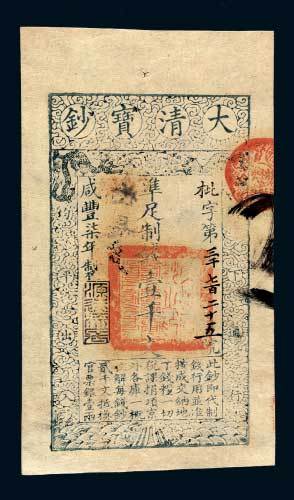 大清寶鈔
枇字第三千七百二十五
準足制錢壹千文
咸豐柒年製
均平出入
此鈔即代制
錢行用並准
按成交納地
丁錢糧一切
稅課捐項京
外各庫一概
收解每錢鈔
貳千文抵換
官票銀壹兩